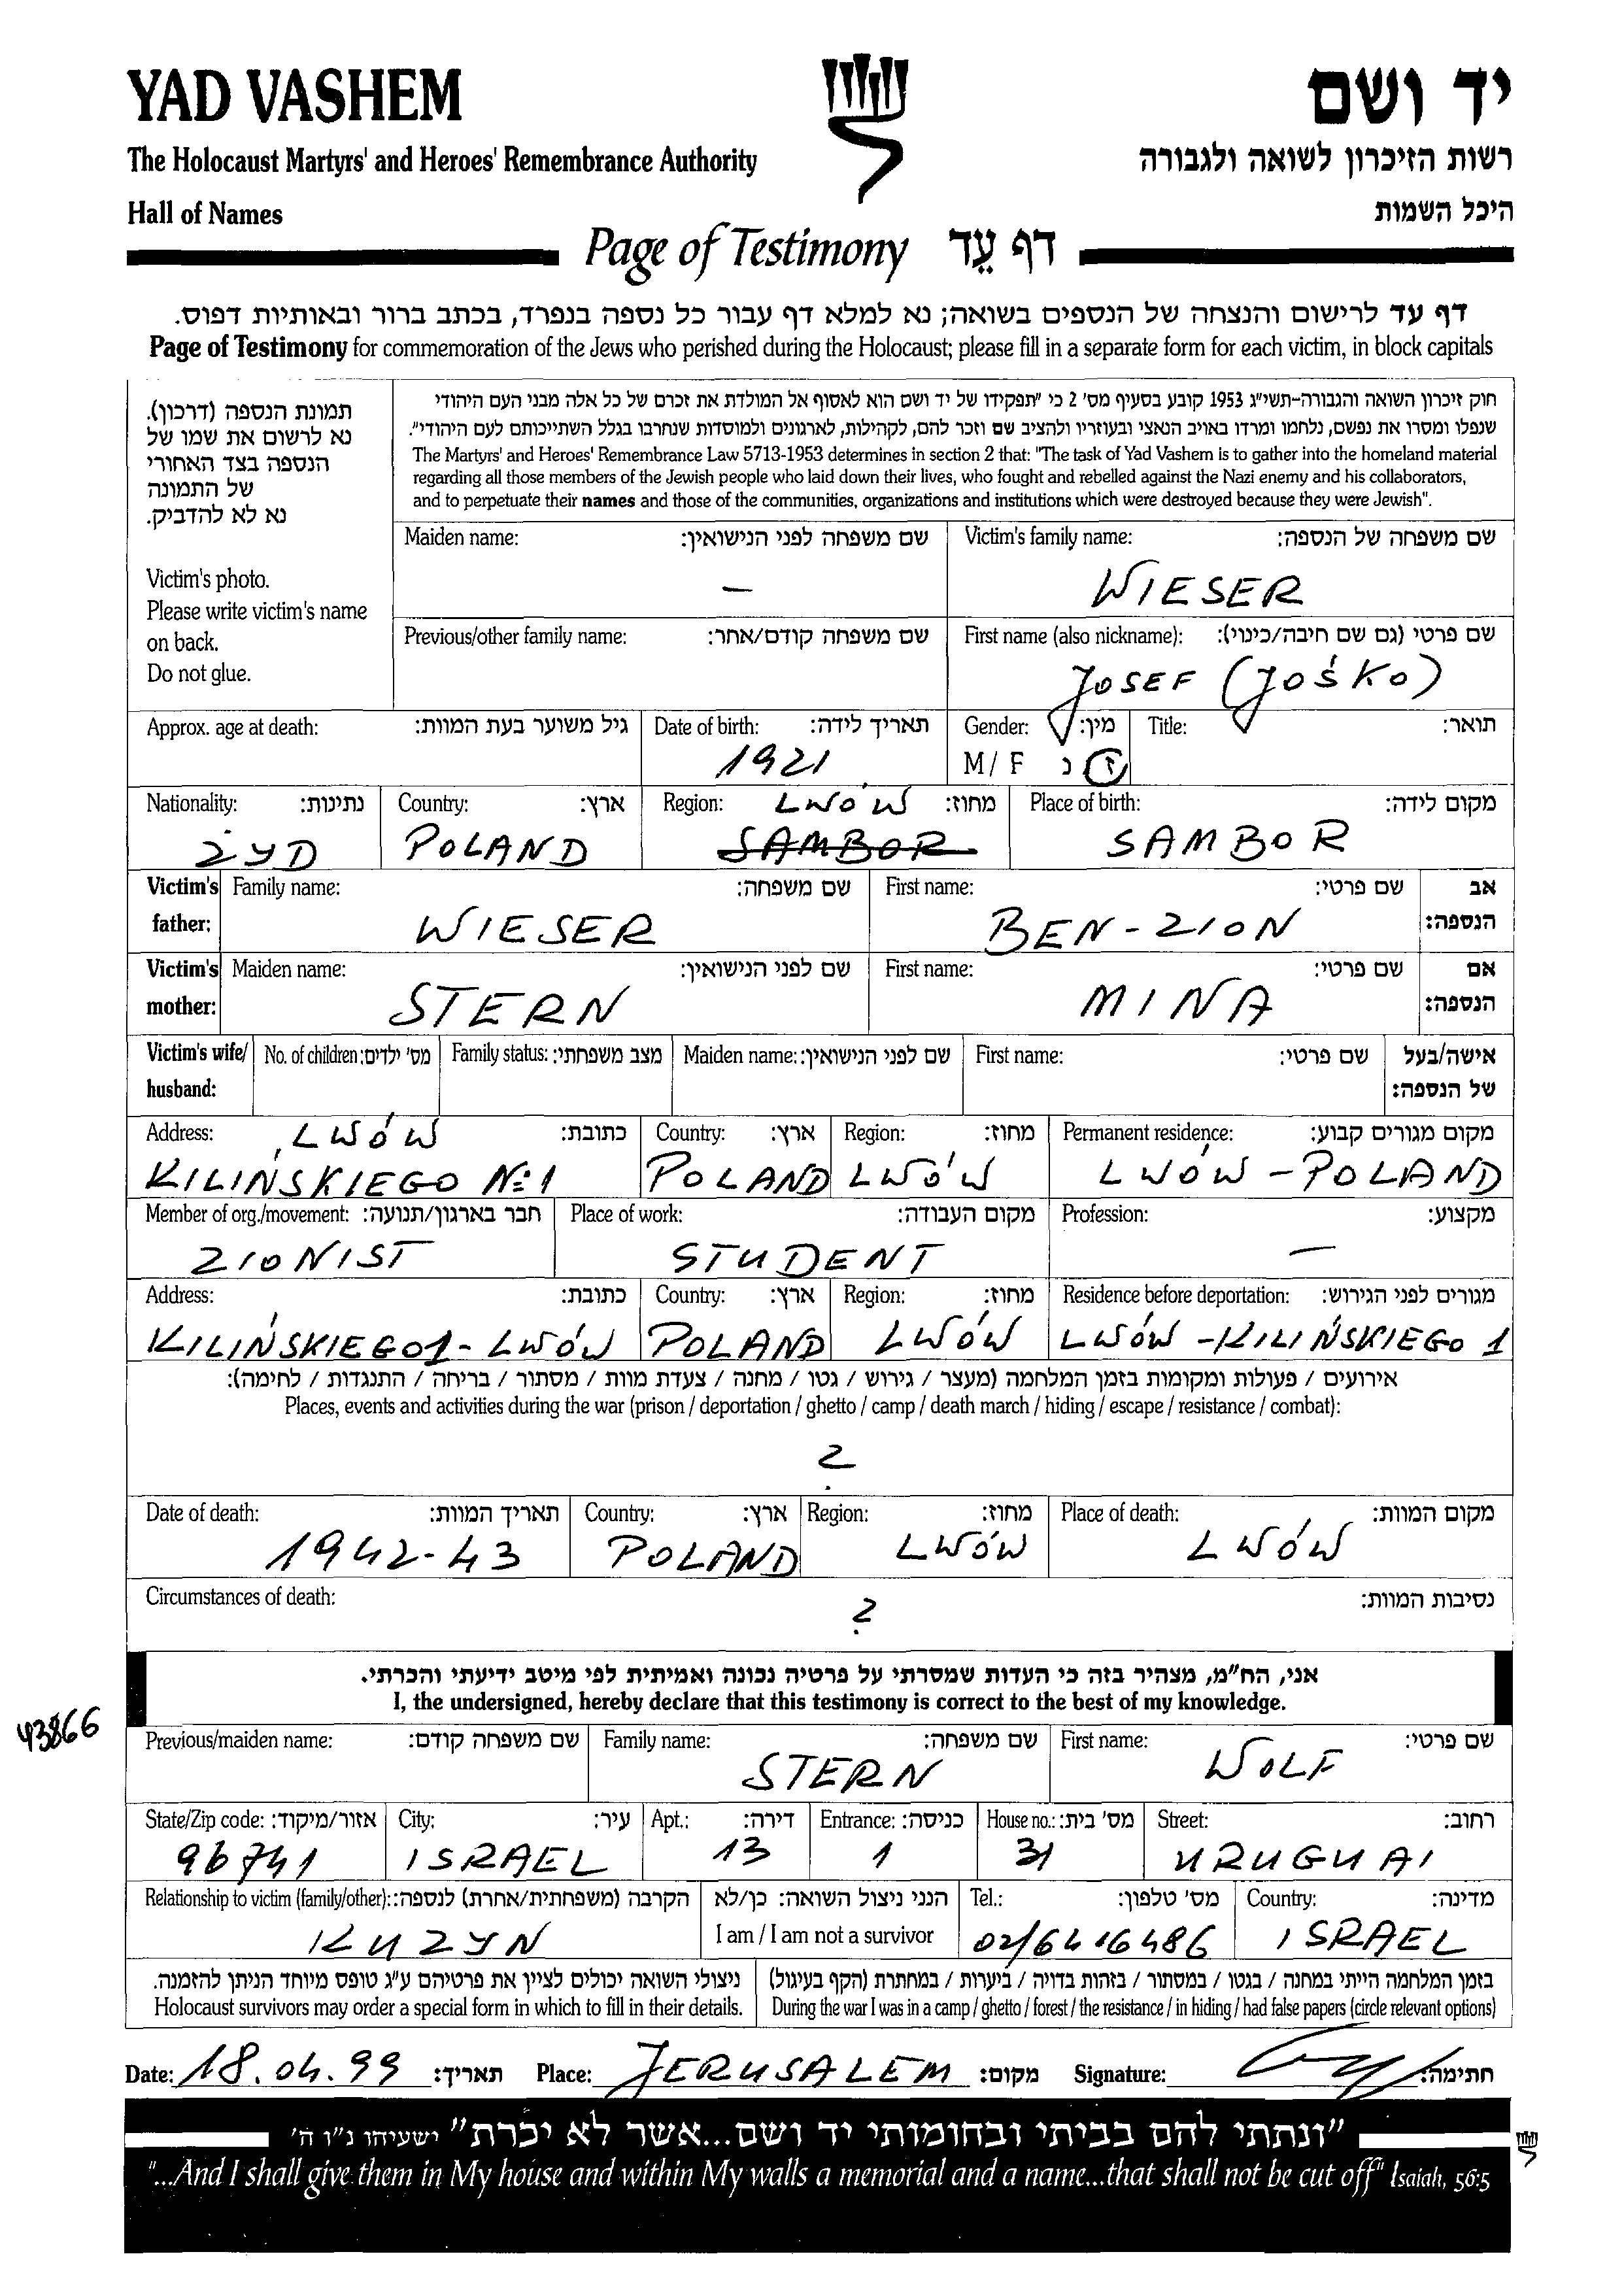 YAD VASHEM
יד ושם
The Holocaust Martyrs' and Heroes' Remembrance Authority
רשות הזיכרון לשואה ולגבורה
Hall of Names
היכל השמות
Page of Testimony דף עֵד
דף עד לרישום והנצחה של הנספים בשואה; נא למלא דף עבור כל נספה בנפרד, בכתב ברור ובאותיות דפוס.
Page of Testimony for commemoration of the Jews who perished during the Holocaust; please fill in a separate form for each victim, in block capitals
תמונת הנספה (דרכון).
נא לרשום את שמו של
הנספה בצד האחורי
של התמונה
נא לא להדביק.
Victim's photo.
Please write victim's name
on back.
Do not glue.
חוק זיכרון השואה והגבורה-תשי"ג 1953 קובע בסעיף מס' 2 כי "תפקידו של יד ושם הוא לאסוף אל המולדת את זכרם של כל אלה מבני העם היהודי
שנפלו ומסרו את נפשם, נלחמו ומרדו באויב הנאצי ובעוזריו ולהציב שם וזכר להם, לקהילות, לארגונים ולמוסדות שנחרבו בגלל השתייכותם לעם היהודי".
The Martyrs' and Heroes' Remembrance Law 5713-1953 determines in section 2 that: "The task of Yad Vashem is to gather into the homeland material
regarding all those members of the Jewish people who laid down their lives, who fought and rebelled against the Nazi enemy and his collaborators,
and to perpetuate their names and those of the communities, organizations and institutions which were destroyed because they were Jewish".
Maiden name: שם משפחה לפני הנישואין: Victim's family name: שם משפחה של הנספה:
– WIESER
Previous/other family name: שם משפחה קודם/אחר: First name (also nickname): שם פרטי (גם שם חיבה/כינוי):
JOSEF (JOŚKO)
Approx. age at death: גיל משוער בעת המוות: Date of birth: תאריך לידה: Gender: מין: Title: תואר:
1921 M / F ז נ
Nationality: נתינות: Country: ארץ: Region: LWÓW מחוז: Place of birth: מקום לידה:
ŻYD POLAND SAMBOR SAMBOR
Victim's Family name: שם משפחה: First name: שם פרטי: אב
father: WIESER BEN-ZION הנספה:
Victim's Maiden name: שם לפני הנישואין: First name: שם פרטי: אם
mother: STERN MINA הנספה:
Victim's wife/ No. of children: מס' ילדים: Family status: מצב משפחתי: Maiden name: שם לפני הנישואין: First name: שם פרטי: אישה/בעל
husband: של הנספה:
Address: LWÓW כתובת: Country: ארץ: Region: מחוז: Permanent residence: מקום מגורים קבוע:
KILIŃSKIEGO №1 POLAND LWÓW LWÓW - POLAND
Member of org./movement: חבר בארגון/תנועה: Place of work: מקום העבודה: Profession: מקצוע:
ZIONIST STUDENT –
Address: כתובת: Country: ארץ: Region: מחוז: Residence before deportation: מגורים לפני הגירוש:
KILIŃSKIEGO 1 - LWÓW POLAND LWÓW LWÓW - KILIŃSKIEGO 1
אירועים / פעולות ומקומות בזמן המלחמה (מעצר / גירוש / גטו / מחנה / צעדת מוות / מסתור / בריחה / התנגדות / לחימה):
Places, events and activities during the war (prison / deportation / ghetto / camp / death march / hiding / escape / resistance / combat):
?
Date of death: תאריך המוות: Country: ארץ: Region: מחוז: Place of death: מקום המוות:
1942-43 POLAND LWÓW LWÓW
Circumstances of death: נסיבות המוות:
?
אני, הח"מ, מצהיר בזה כי העדות שמסרתי על פרטיה נכונה ואמיתית לפי מיטב ידיעתי והכרתי.
I, the undersigned, hereby declare that this testimony is correct to the best of my knowledge.
43866
Previous/maiden name: שם משפחה קודם: Family name: שם משפחה: First name: שם פרטי:
STERN WOLF
State/Zip code: אזור/מיקוד: City: עיר: Apt.: דירה: Entrance: כניסה: House no.: מס' בית: Street: רחוב:
96741 ISRAEL 13 1 31 URUGUAI
Relationship to victim (family/other): הקרבה (משפחתית/אחרת) לנספה: הנני ניצול השואה: כן/לא Tel.: מס' טלפון: Country: מדינה:
KUZYN I am / I am not a survivor 02/6416486 ISRAEL
ניצולי השואה יכולים לציין את פרטיהם ע"ג טופס מיוחד הניתן להזמנה. בזמן המלחמה הייתי במחנה / בגטו / במסתור / בזהות בדויה / ביערות / במחתרת (הקף בעיגול)
Holocaust survivors may order a special form in which to fill in their details. During the war I was in a camp / ghetto / forest / the resistance / in hiding / had false papers (circle relevant options)
Date: 18.04.99 תאריך: Place: JERUSALEM מקום: Signature: חתימה:
"ונתתי להם בביתי ובחומותי יד ושם...אשר לא יכרת" ישעיהו נ"ו ה'
"...And I shall give them in My house and within My walls a memorial and a name...that shall not be cut off" Isaiah, 56:5